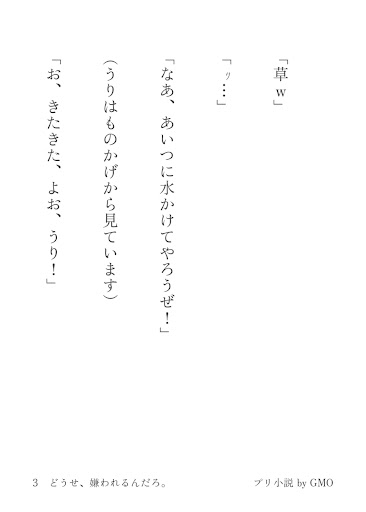 「草ｗ」
「ｯ…」
「なあ、あいつに水かけてやろうぜ！」
(うりはものかげから見ています)
「お、きたきた、よお、うり！」
3 どうせ、嫌われるんだろ。
プリ小説 by GMO